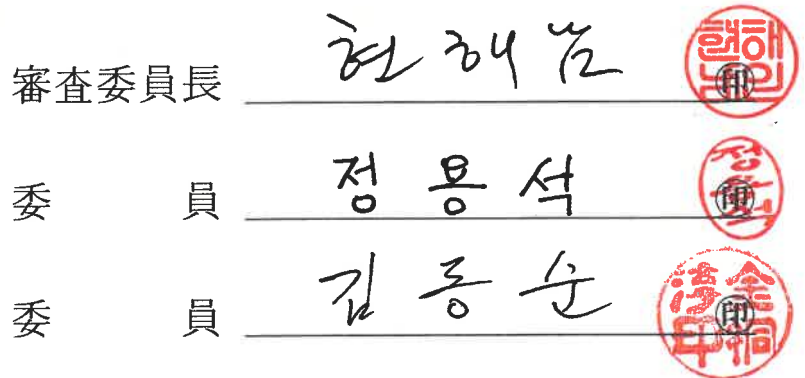 審査委員長 현해남 印
委員 정용석 印
委員 김동순 印